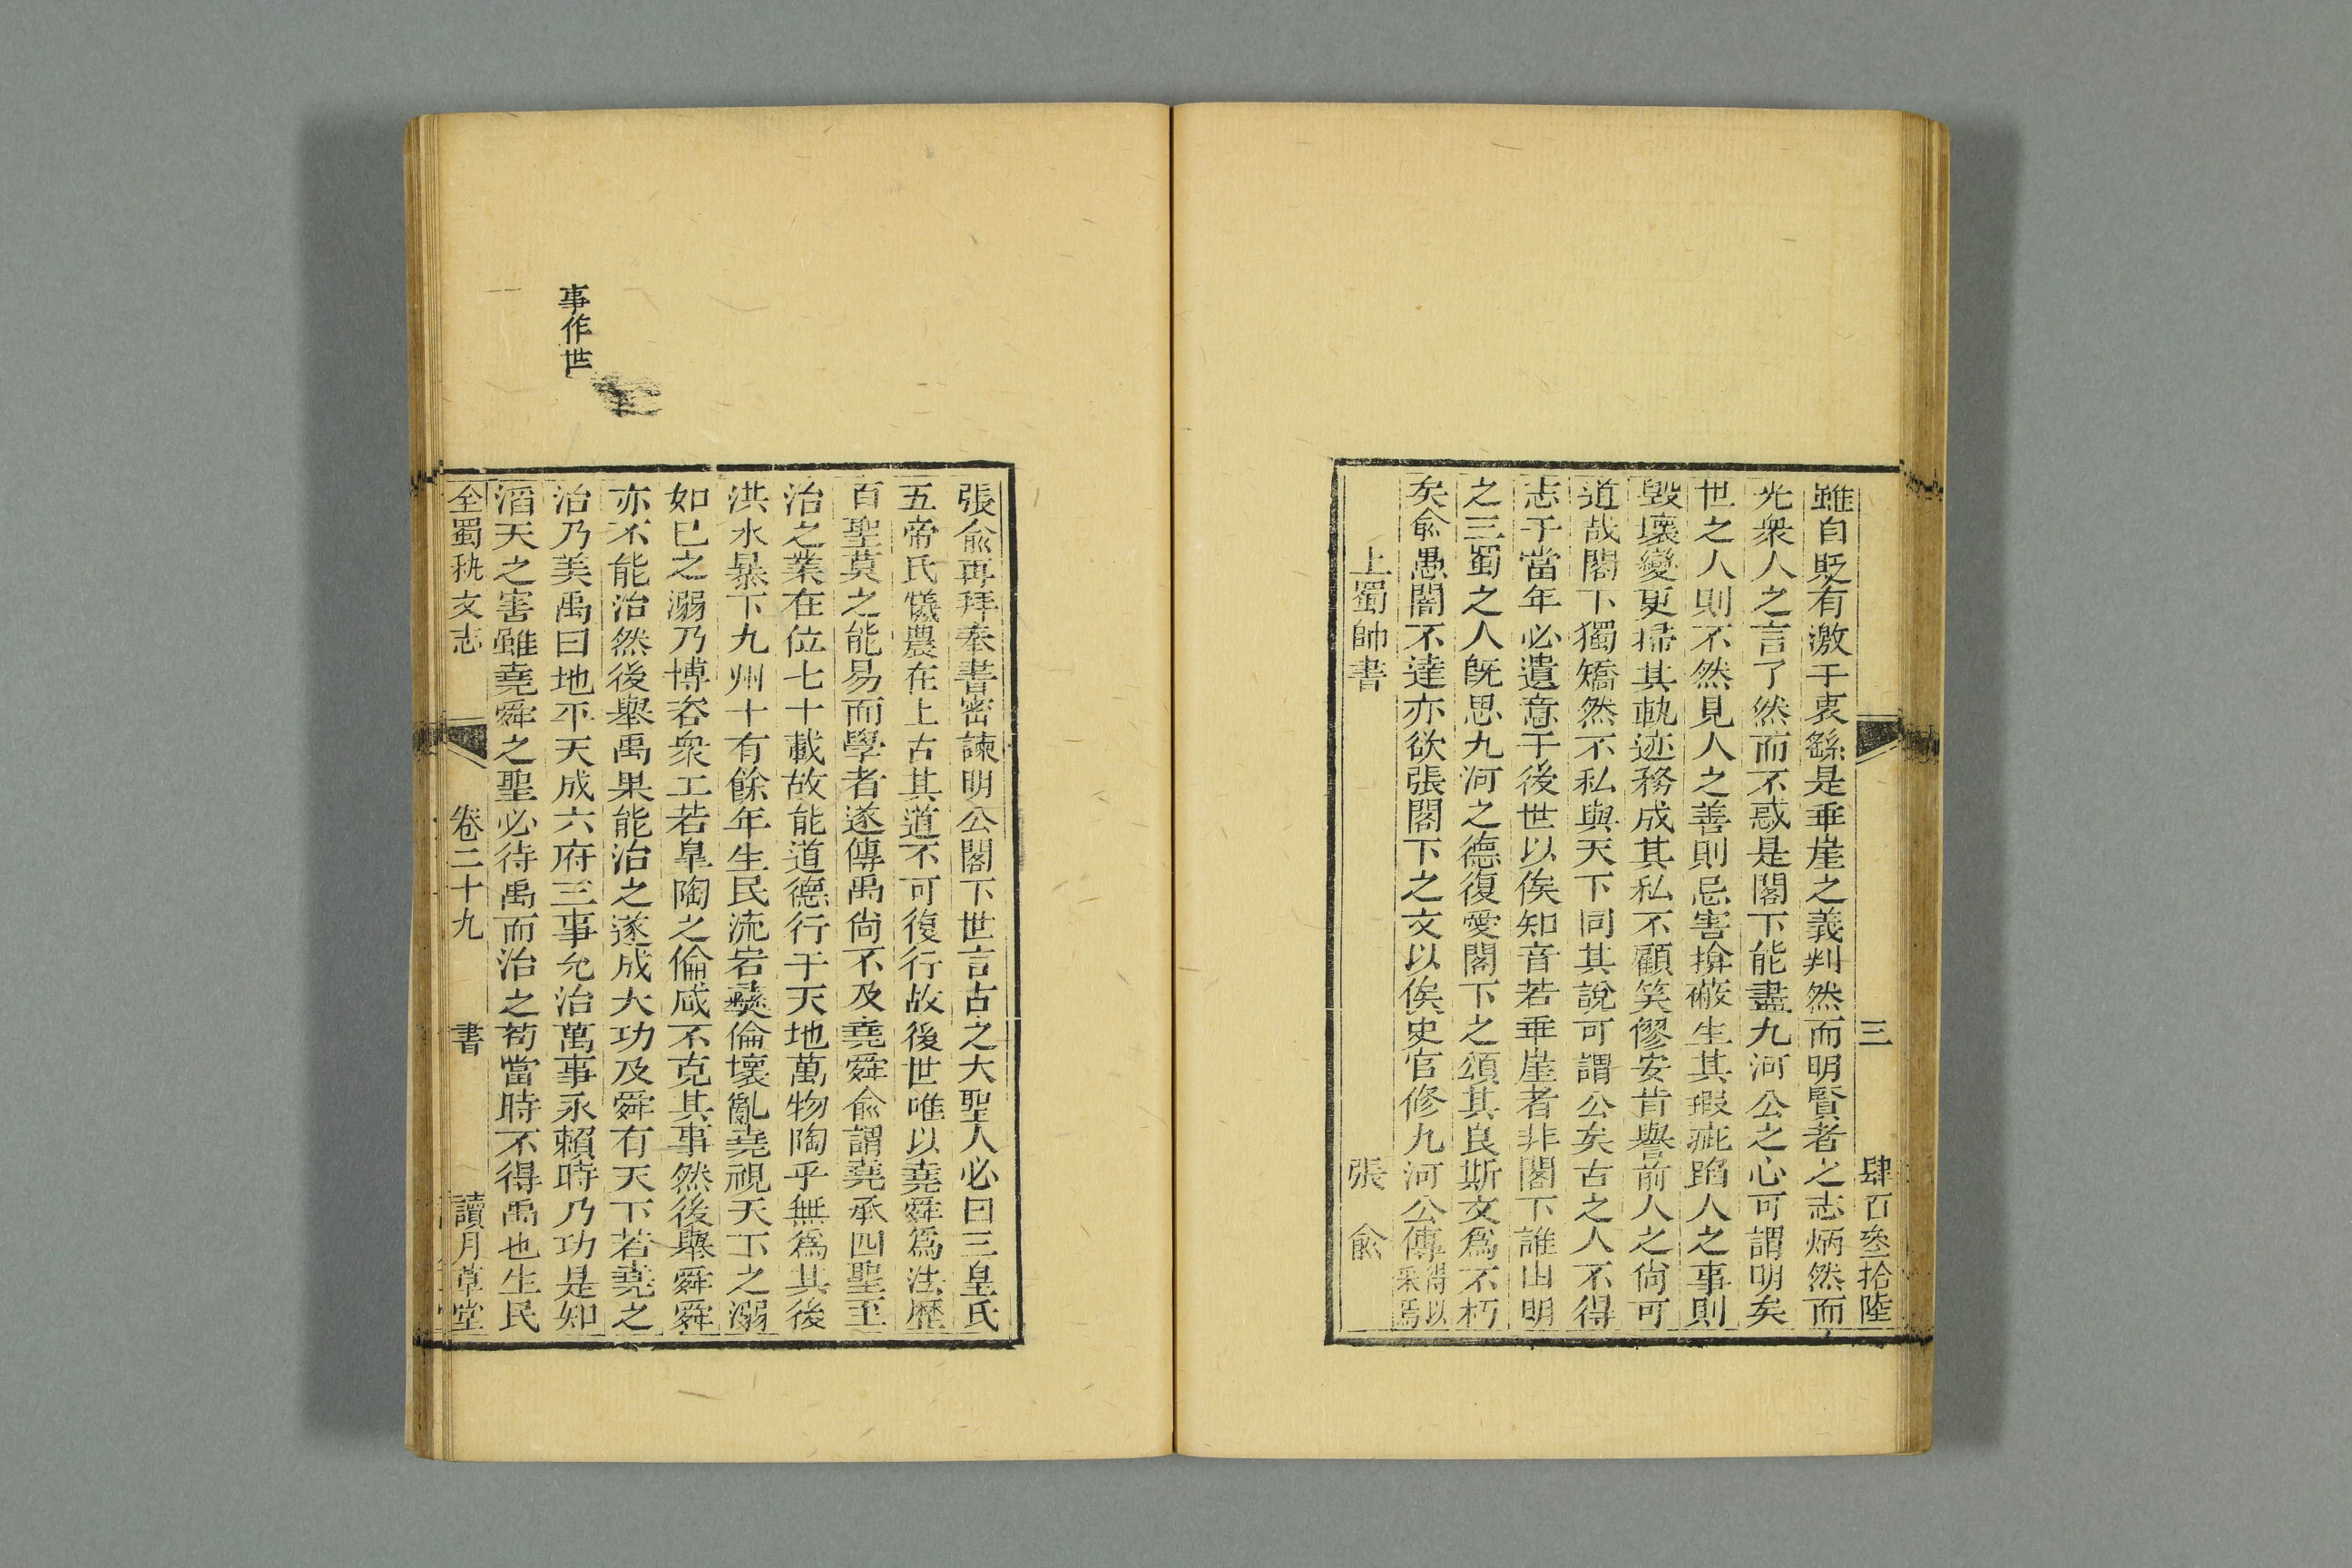 三　肆百叁拾陸
雖自貶有激于衷繇是垂崖之義判然而明賢者之志炳然而
光衆人之言了然而不惑是閣下能盡九河公之心可謂明矣
世之人則不然見人之善則忌害揜蔽生其瑕疵蹈人之事則
毀壞變更掃其軌迹務成其私不顧笑僇安肯譽前人之尙可
道哉閣下獨矯然不私與天下同其說可謂公矣古之人不得
志于當年必遺意于後世以俟知音若垂崖者非閣下誰由明
之三蜀之人旣思九河之德復愛閣下之頌其良斯文爲不朽
矣兪愚闇不達亦欲張閣下之文以俟史官修九河公傳得以采焉
上蜀帥書　張兪
張兪再拜奉書密諫明公閣下世言古之大聖人必曰三皇氏
五帝氏犧農在上古其道不可復行故後世唯以堯舜爲法歷
百聖莫之能易而學者遂傳禹尙不及堯舜兪謂堯承四聖至
治之業在位七十載故能道德行于天地萬物陶乎無爲其後
洪水暴下九州十有餘年生民流宕彝倫壞亂堯視天下之溺
如已之溺乃博咨衆工若臯陶之倫咸不克其事然後舉舜舜
亦不能治然後舉禹果能治之遂成大功及舜有天下若堯之
治乃美禹曰地平天成六府三事允治萬事永賴時乃功是知
滔天之害雖堯舜之聖必待禹而治之苟當時不得禹也生民
全蜀秇文志　卷二十九　書　讀月草堂
事作世